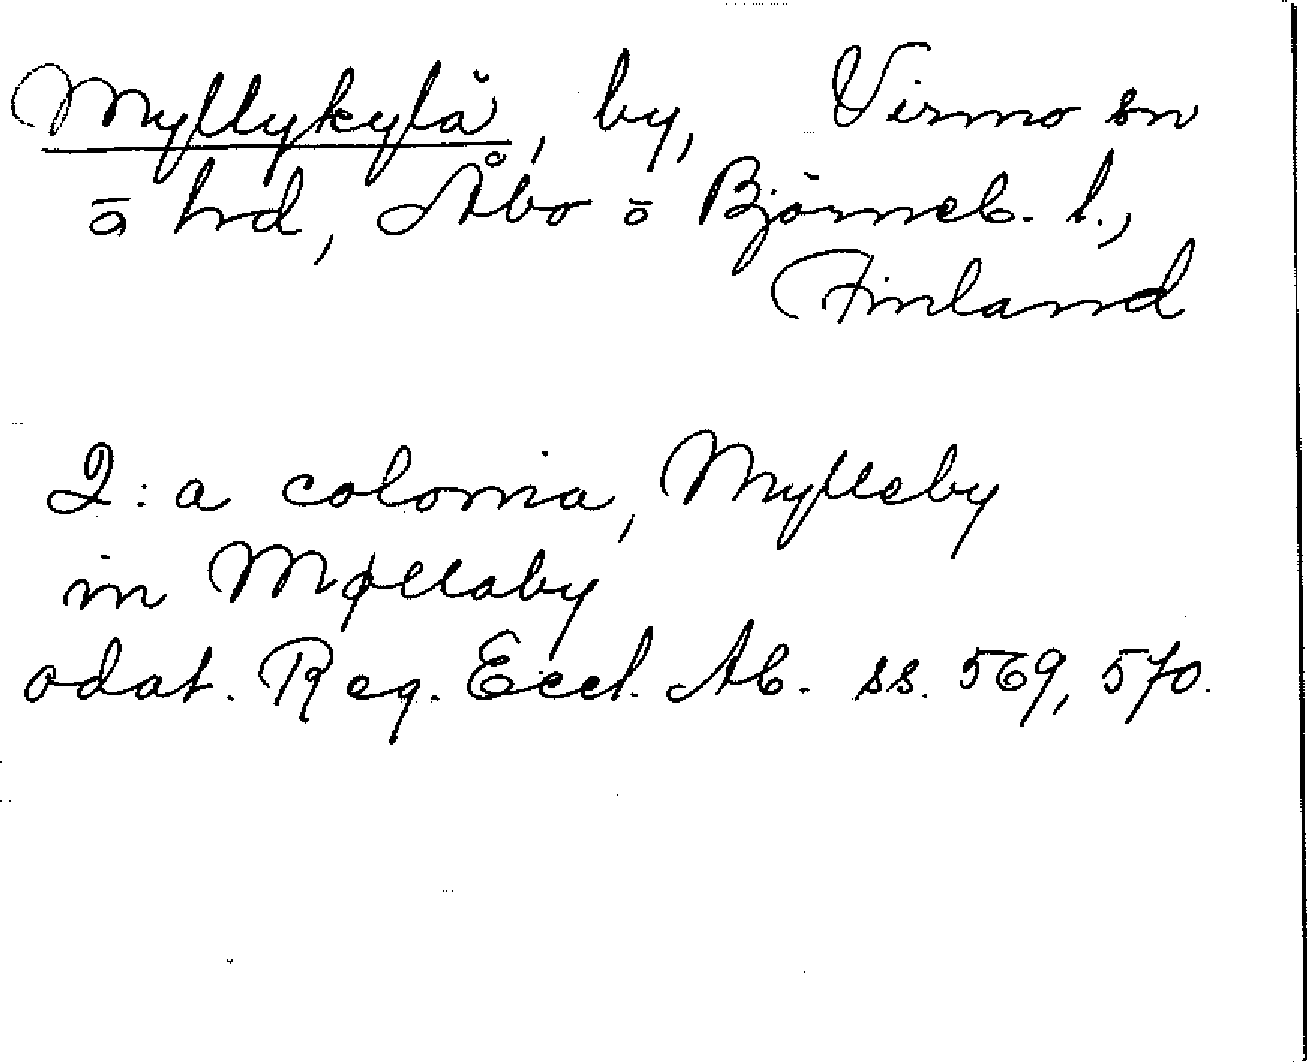 Myllykylä, by, Virmo sn
o hd, Åbo o Björneb. l.,
Finland
2:a colonia, Mylleby
in Møllaby
odat. Reg. Eccl. Ab. ss. 569, 570.